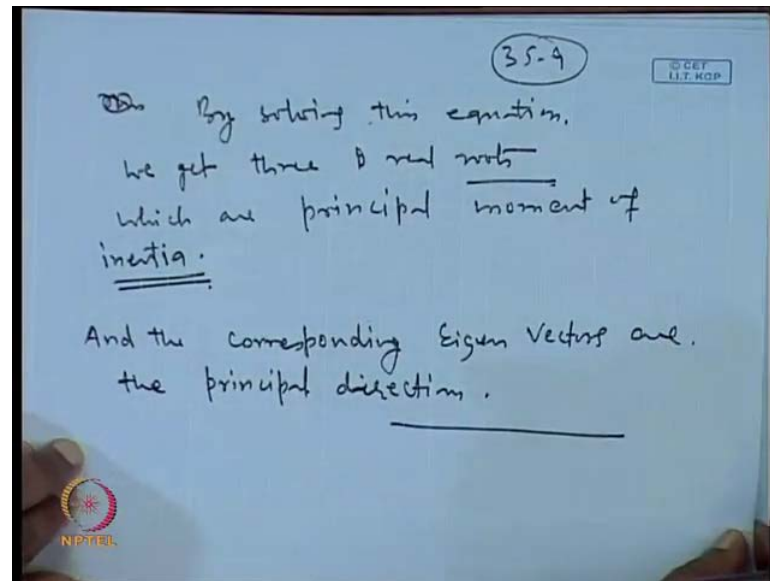 35-9
© CET
I.I.T. KGP
By solving this equation,
we get three real roots
which are principal moment of
inertia.
And the corresponding Eigen Vectors are.
the principal direction.
NPTEL